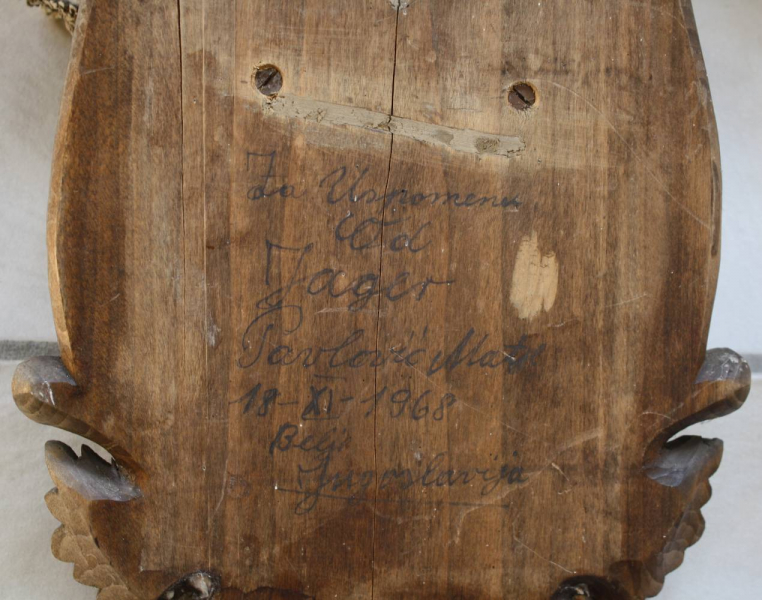 Za Uspomenu
Od
Jager
Pavlović Mato
18-XI-1968
Belje
Jugoslavija